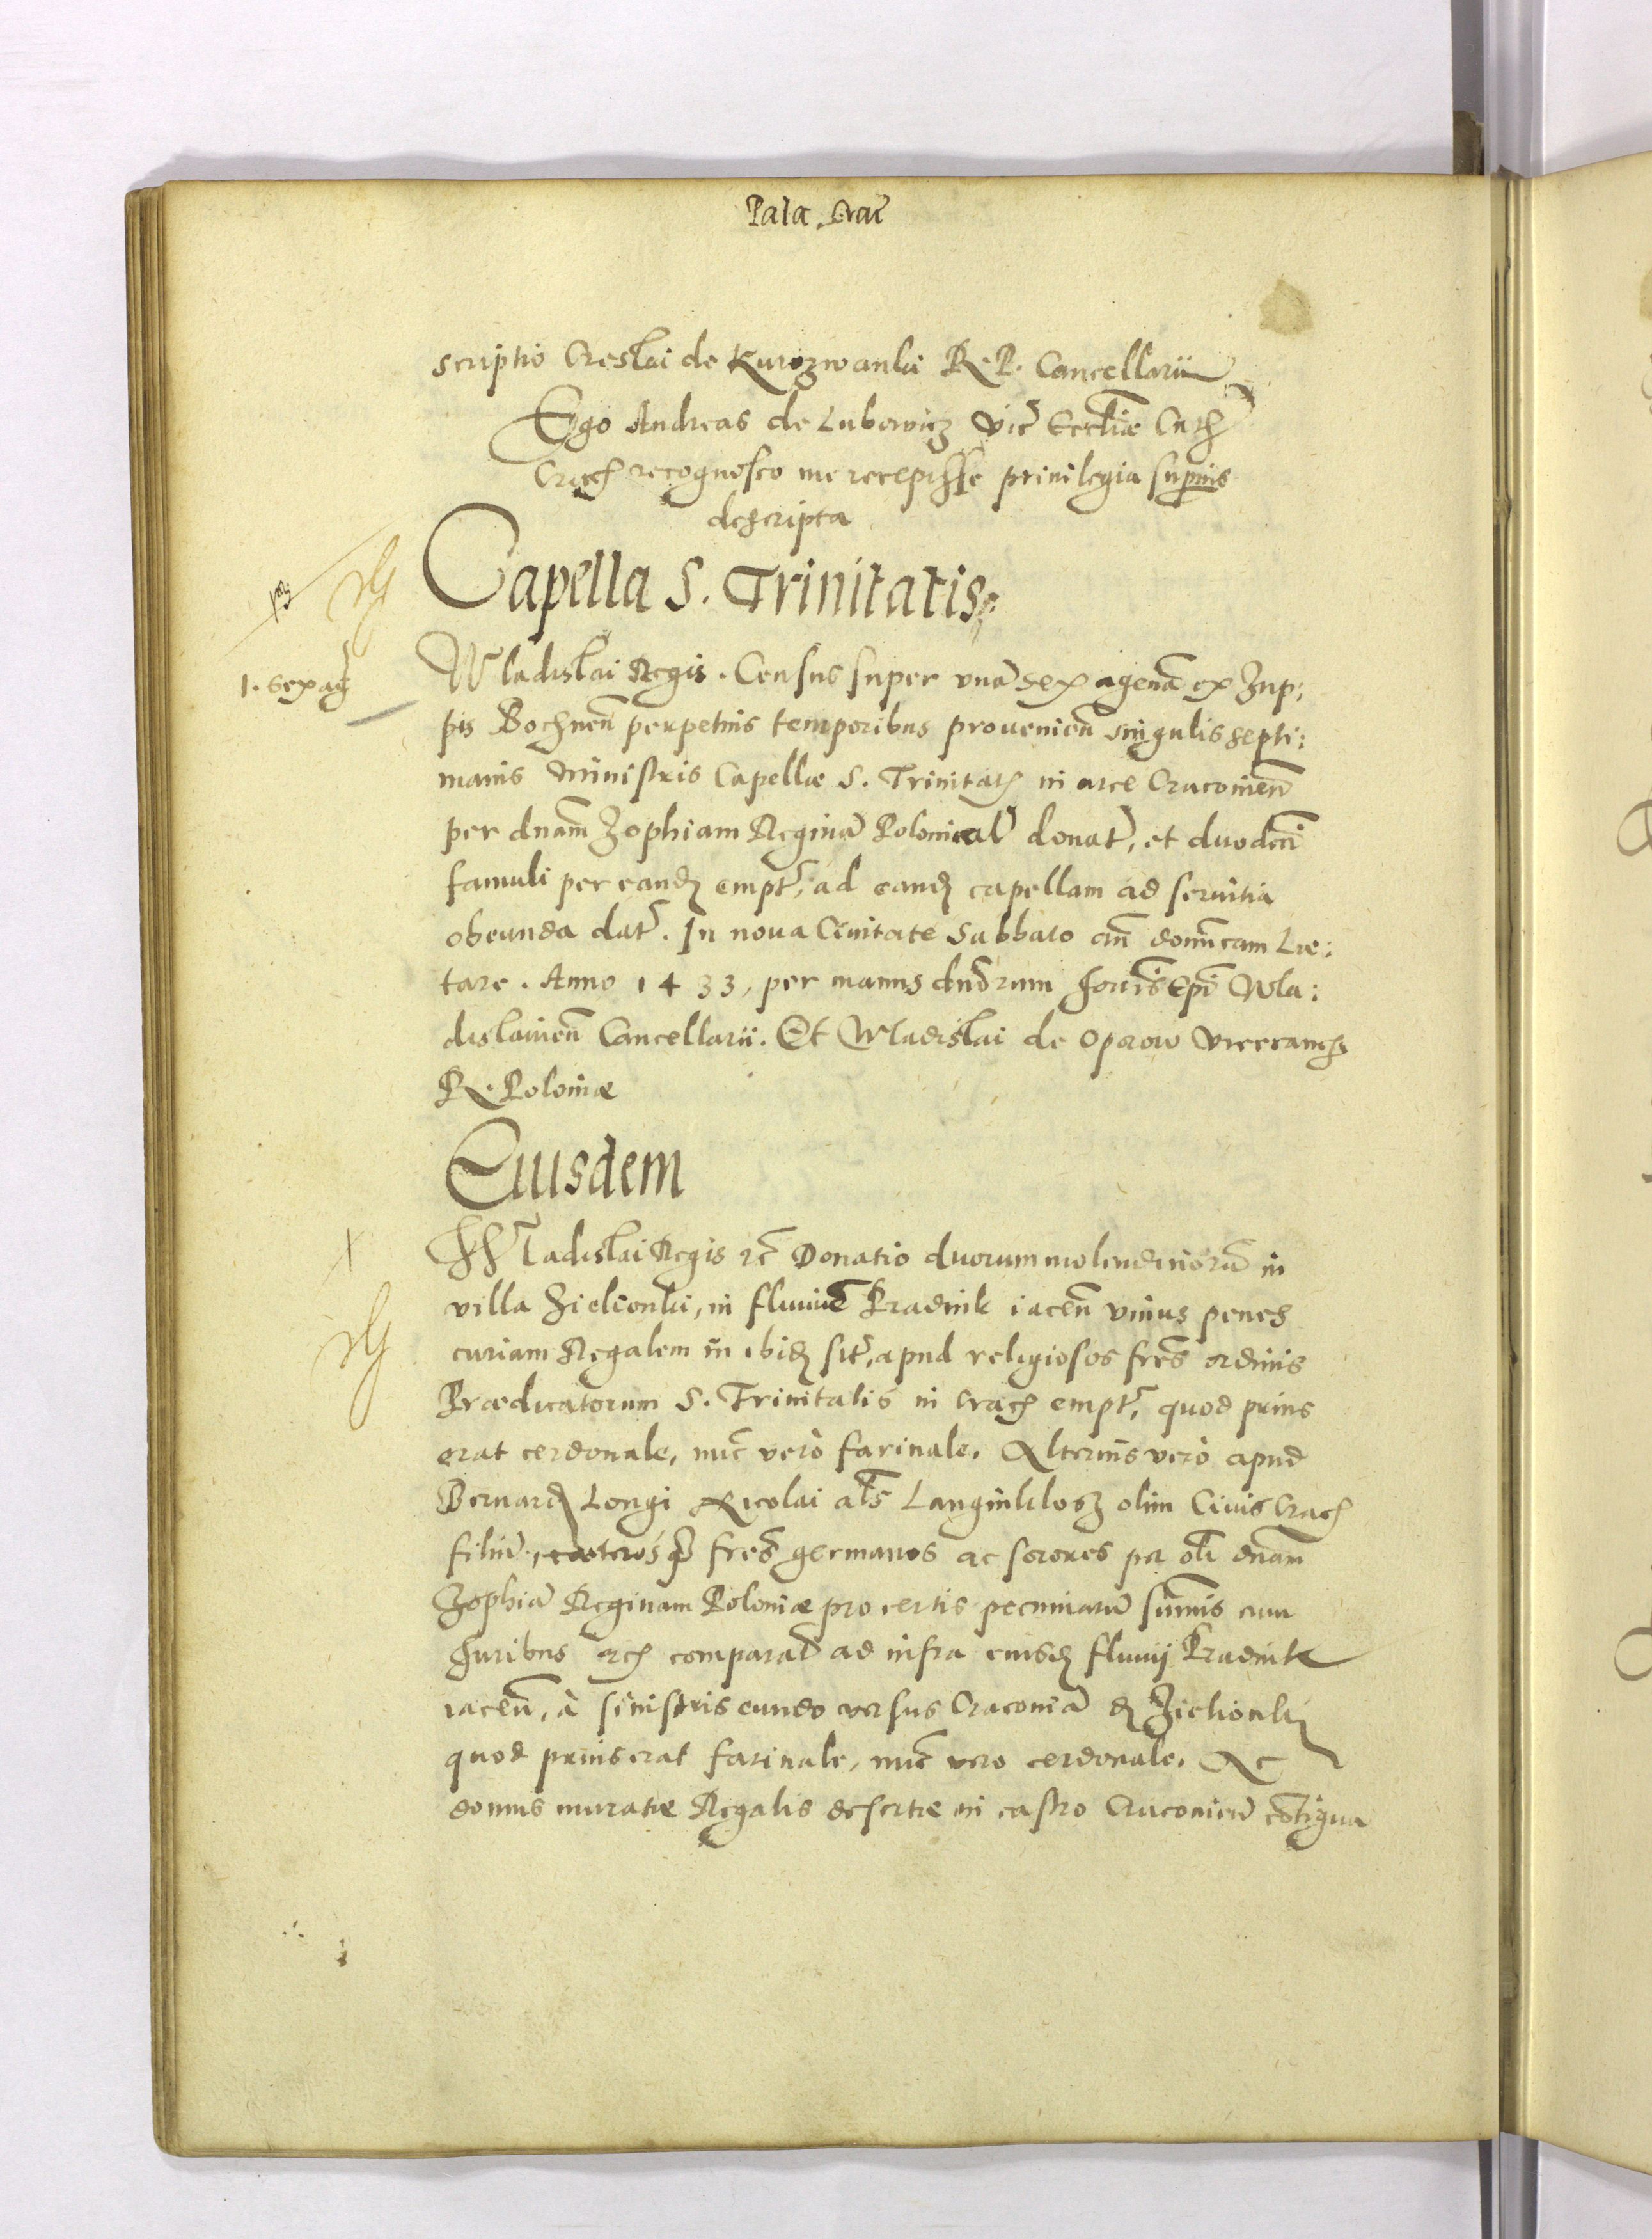 Pala. Crac̄
scriptio Creslai de Kurozwanki R. P. Cancellarii
Ego Andreas de Lubowicz Vic̄ Eccl̄iæ Cath
Crac recognosco me recepisse priuilegia supius
descripta
Capella S. Trinitatis.
Wladislai Regis. Census super vnā sexagenā ex Zup:
1. sexag
pis Bochnen̄ perpetuis temporibus prouenien̄ singulis septi:
manis ministris Capellæ S. Trinitatis in arce Cracouien̄
per dnam̄ Zophiam Reginā Poloniæ donat̄, et duodeci
famuli per eandē empt̄, ad eandē capellam ad seruitia
obeunda dat̄. In noua Ciuitate Sabbato an̄ domīcam Læ:
tare. Anno 1433, per manus dnōrum Joan̄is Ep̄i Wla:
dislauien̄ Cancellarii. Et Wladislai de Oporow Vicecanc
R. Poloniæ
Eiusdem
Wladislai Regis &c̄ Donatio duorum molendinorū in
villa Zielionki, in fluuio Pradnik iacen̄ vnius penes
curiam Regalem in ibidē sit̄, apud religiosos fres̄ ordinis
Prædicatorum S. Trinitatis in Crac empt̄, quod prius
erat cerdonale, nuc̄ verò farinale. Alterius verò apud
Bernard Longi Nicolai al̄s Langinklosz olim Ciuis Crac
filiū, cæteros q̄ fres̄ germanos ac sorores per ol̄i dnam̄
Zophiā Reginam Poloniæ pro certis pecuniarū sum̄is cum
Juribus &c comparat̄ ad infra eiusdē fluuij Pradnik
iacen̄, à sinistris eundo versus Cracouiā de Zielionki
quod prius erat farinale, nuc̄ vero cerdonale. Ac
domus muratæ Regalis desertæ in castro Cracouien̄ cōtigua